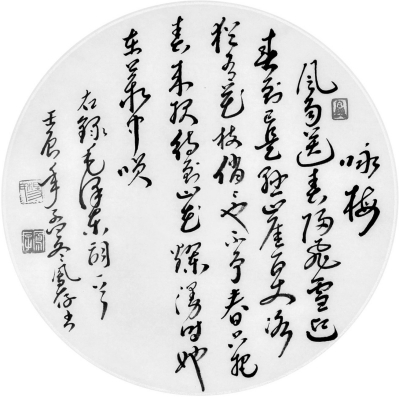 咏梅
风雨送春归飞雪迎
春到已是悬崖百丈冰
犹有花枝俏俏也不争春只把
春来报待到山花烂漫时她
在丛中笑
右録毛泽东词一首
壬辰年冬书